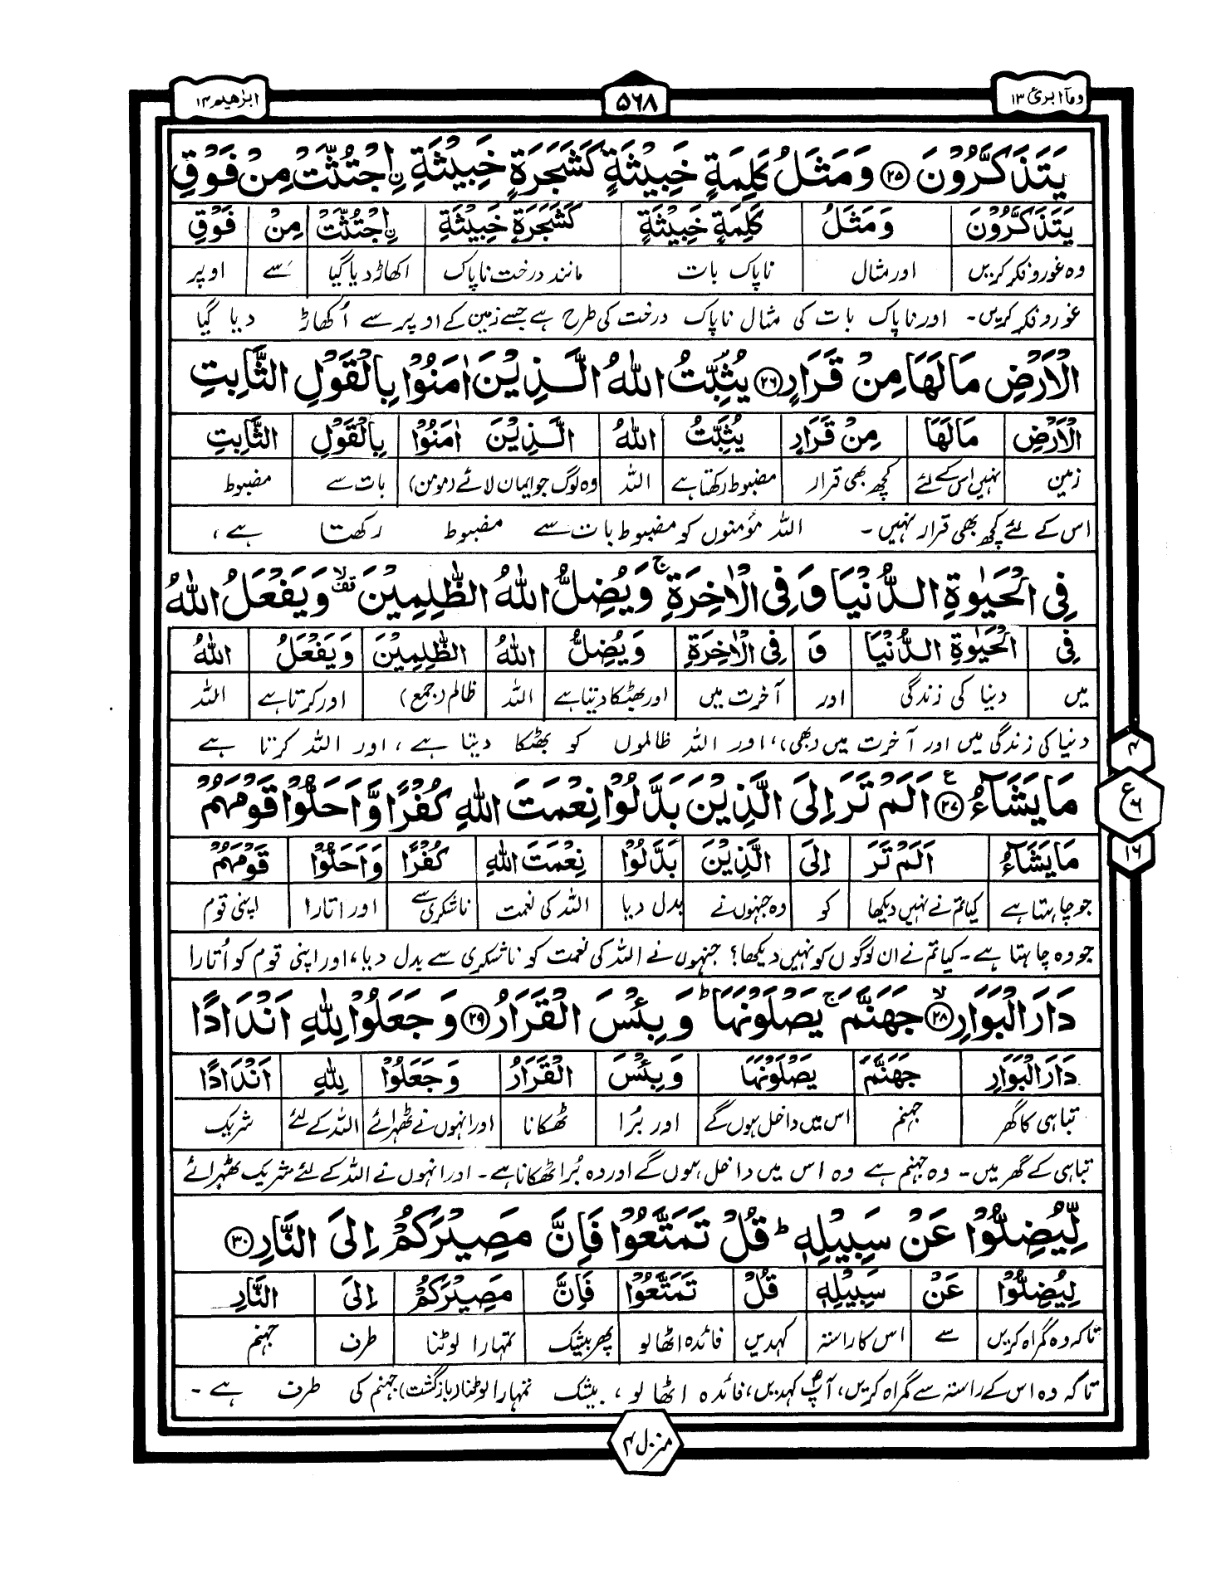 ومآ ابرئ ۱۳
۵۶۸
ابرٰهيم ۱۴
يَتَذَكَّرُوْنَ ۝۲۵ وَمَثَلُ كَلِمَةٍ خَبِيْثَةٍ كَشَجَرَةٍ خَبِيْثَةِ ِۨاجْتُثَّتْ مِنْ فَوْقِ
يَتَذَكَّرُوْنَ وَمَثَلُ كَلِمَةٍ خَبِيْثَةٍ كَشَجَرَةٍ خَبِيْثَةِ ِۨاجْتُثَّتْ مِنْ فَوْقِ
وہ غور و فکر کریں اور مثال ناپاک بات مانند درخت ناپاک اکھاڑ دیا گیا سے اوپر
غور و فکر کریں۔ اور ناپاک بات کی مثال ناپاک درخت کی طرح ہے جسے زمین کے اوپر سے اُکھاڑ دیا گیا
الْاَرْضِ مَا لَهَا مِنْ قَرَارٍ ۝۲۶ يُثَبِّتُ اللّٰهُ الَّذِيْنَ اٰمَنُوْا بِالْقَوْلِ الثَّابِتِ
الْاَرْضِ مَا لَهَا مِنْ قَرَارٍ يُثَبِّتُ اللّٰهُ الَّذِيْنَ اٰمَنُوْا بِالْقَوْلِ الثَّابِتِ
زمین نہیں اس کے لئے کچھ بھی قرار مضبوط رکھتا ہے اللہ وہ لوگ جو ایمان لائے (مومن) بات سے مضبوط
اس کے لئے کچھ بھی قرار نہیں۔ اللہ مؤمنوں کو مضبوط بات سے مضبوط رکھتا ہے،
فِي الْحَيٰوةِ الدُّنْيَا وَفِي الْاٰخِرَةِ ۚ وَيُضِلُّ اللّٰهُ الظّٰلِمِيْنَ ۙ قف وَيَفْعَلُ اللّٰهُ
فِي الْحَيٰوةِ الدُّنْيَا وَ فِي الْاٰخِرَةِ وَيُضِلُّ اللّٰهُ الظّٰلِمِيْنَ وَيَفْعَلُ اللّٰهُ
میں دنیا کی زندگی اور آخرت میں اور بھٹکا دیتا ہے اللہ ظالم (جمع) اور کرتا ہے اللہ
دنیا کی زندگی میں اور آخرت میں (بھی)، اور اللہ ظالموں کو بھٹکا دیتا ہے، اور اللہ کرتا ہے
مَا يَشَآءُ ۝۲۷ ع اَلَمْ تَرَ اِلَى الَّذِيْنَ بَدَّلُوْا نِعْمَتَ اللّٰهِ كُفْرًا وَّاَحَلُّوْا قَوْمَهُمْ
۴
ع ۶
۱۶
مَا يَشَآءُ اَلَمْ تَرَ اِلَى الَّذِيْنَ بَدَّلُوْا نِعْمَتَ اللّٰهِ كُفْرًا وَاَحَلُّوْا قَوْمَهُمْ
جو چاہتا ہے کیا تم نے نہیں دیکھا کو وہ جنہوں نے بدل دیا اللہ کی نعمت ناشکری سے اور اتارا اپنی قوم
جو وہ چاہتا ہے۔ کیا تم نے ان لوگوں کو نہیں دیکھا؟ جنہوں نے اللہ کی نعمت کو ناشکری سے بدل دیا، اور اپنی قوم کو اُتارا
دَارَ الْبَوَارِ ۙ۝۲۸ جَهَنَّمَ ۚ يَصْلَوْنَهَا ؕ وَبِئْسَ الْقَرَارُ ۝۲۹ وَجَعَلُوْا لِلّٰهِ اَنْدَادًا
دَارَ الْبَوَارِ جَهَنَّمَ يَصْلَوْنَهَا وَبِئْسَ الْقَرَارُ وَجَعَلُوْا لِلّٰهِ اَنْدَادًا
تباہی کا گھر جہنم اس میں داخل ہوں گے اور بُرا ٹھکانا اور انہوں نے ٹھہرائے اللہ کے لئے شریک
تباہی کے گھر میں۔ وہ جہنم ہے وہ اس میں داخل ہوں گے اور وہ بُرا ٹھکانا ہے۔ اور انہوں نے اللہ کے لئے شریک ٹھہرائے
لِّيُضِلُّوْا عَنْ سَبِيْلِهٖ ؕ قُلْ تَمَتَّعُوْا فَاِنَّ مَصِيْرَكُمْ اِلَى النَّارِ ۝۳۰
لِيُضِلُّوْا عَنْ سَبِيْلِهٖ قُلْ تَمَتَّعُوْا فَاِنَّ مَصِيْرَكُمْ اِلَى النَّارِ
تاکہ وہ گمراہ کریں سے اس کا راستہ کہدیں فائدہ اٹھالو پھر بیشک تمہارا لوٹنا طرف جہنم
تاکہ وہ اس کے راستہ سے گمراہ کریں، آپؐ کہدیں، فائدہ اٹھا لو، بیشک تمہارا لوٹنا (بازگشت) جہنم کی طرف ہے۔
منزل ۴